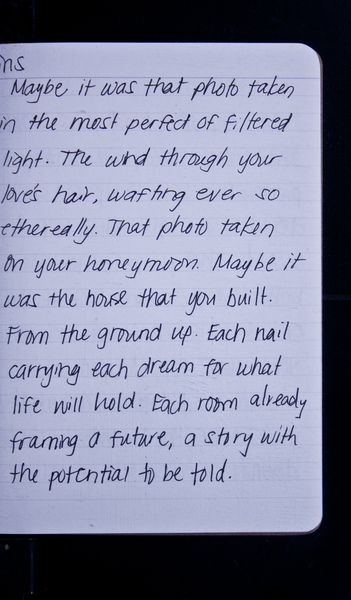 ns
Maybe it was that photo taken
in the most perfect of filtered
light. The wind through your
love's hair, wafting ever so
ethereally. That photo taken
on your honeymoon. Maybe it
was the house that you built.
From the ground up. Each nail
carrying each dream for what
life will hold. Each room already
framing a future, a story with
the potential to be told.